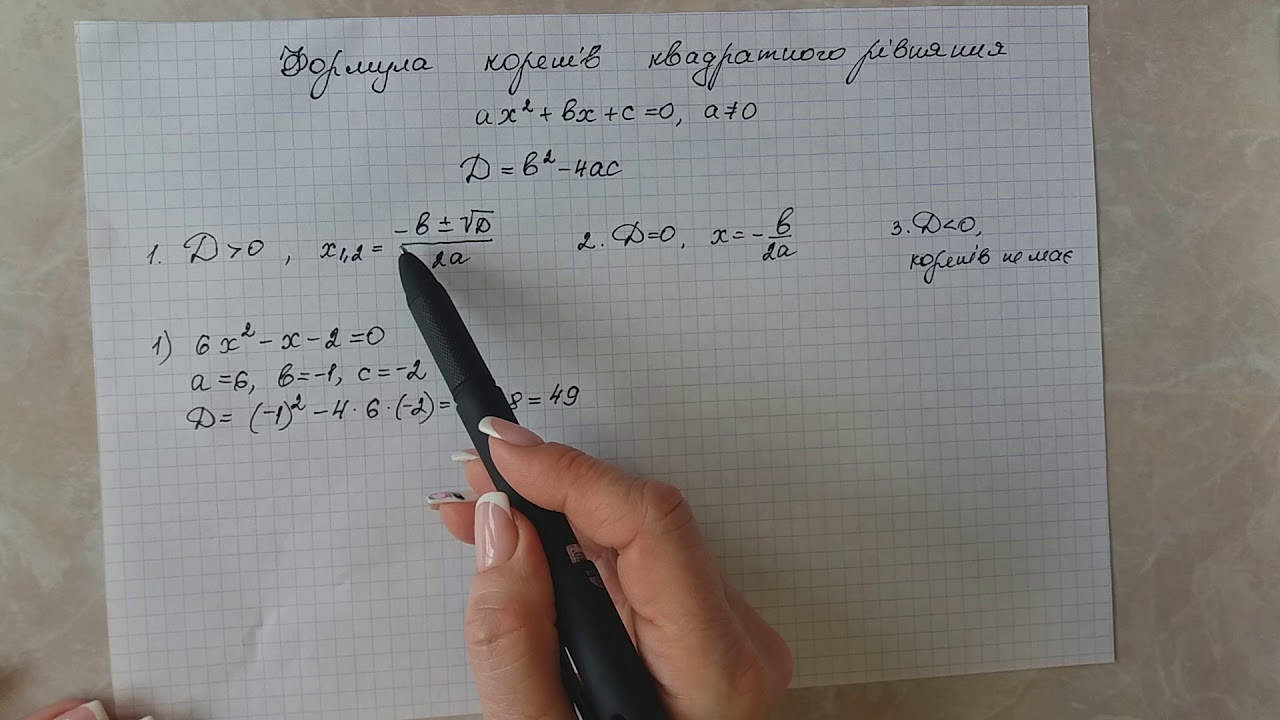 Формула коренів квадратного рівняння
ax² + bx + c = 0, a ≠ 0
D = b² - 4ac
1. D > 0, x₁,₂ = (-b ± √D) / 2a 2. D = 0, x = - b / 2a 3. D < 0,
коренів немає
1) 6x² - x - 2 = 0
a = 6, b = -1, c = -2
D = (-1)² - 4 · 6 · (-2) = 8 = 49